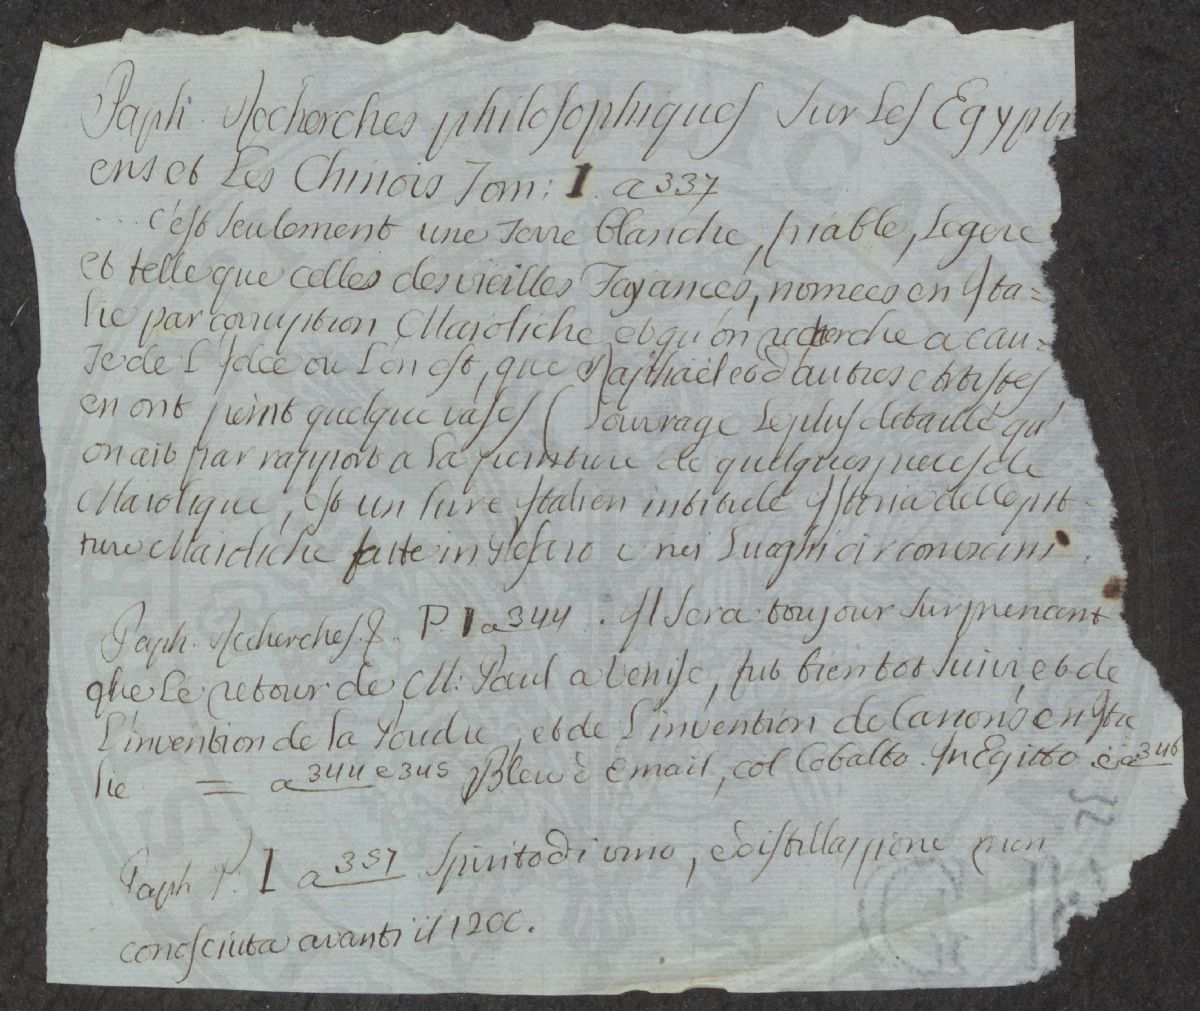 Paph. Recherches philosophiques sur Les Egypti
ens et Les Chinois Tom: I a 337
.... c'est seulement une Terre blanche, friable, Legere
et telle que celles des vieilles Fajances, nomees en Jta=
lie par corruption Maioliche et qu'on recherche a cau=
se de L'Jdee ou L'on est, que Raphael et d'autres Artistes
en ont peint quelque vases (L'ouvrage Le plus detaillé qu'
on ait par rapport a La peinture de quelques pieces de
Maiolique, est un livre Jtalien intitulé Jstoria delle pit=
ture Maioliche fatte in Pesaro e nei Luoghi circonvicini.
Paph. Recherches &. P. I a 344. Jl sera toujour surprenant
que Le retour de M: Paul a Venise, fut bientot suivi, et de
L'invention de la Poudre, et de L'invention de Canons en Jta
lie = a 344 e 345 Bleu d'Email, col Cobalto. In Egitto è a 346
Paph P. I a 357 Spirito di vino, e distillazzione non
conosciuta avanti il 1200.